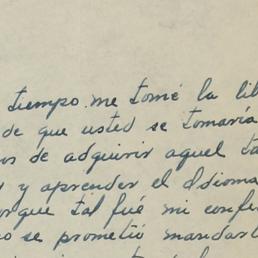 tiempo me tomé la lib
de que usted se tomaría
os de adquirir aquel ta
y aprender el Idioma
orque tal fué mi confe
o se prometió mandarl